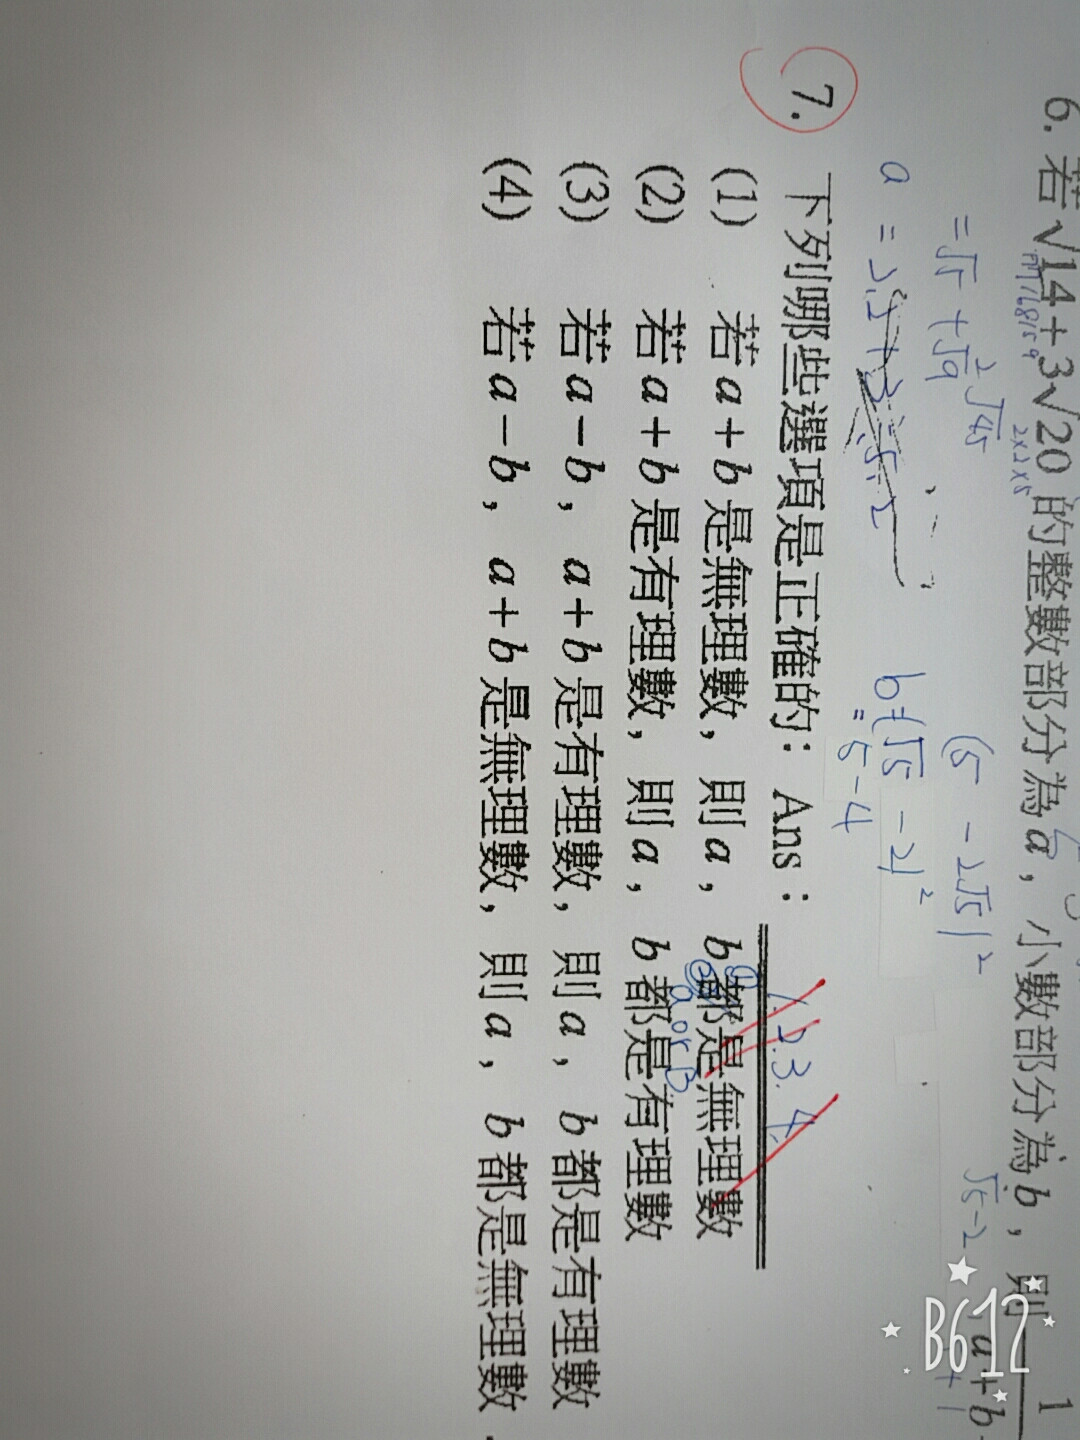 6. 若√14+3√20 的整數部分為a，小數部分為b，則 1
a+b
2×2×5
=√5 + √9
2√45
(5 - 2√5)²
√5-2
a =
b=(√5 - 2)²
= 5-4
7. 下列哪些選項是正確的：Ans： 1.2.3.4
(1) 若a+b是無理數，則a，b都是無理數
a or B
(2) 若a+b是有理數，則a，b都是有理數
(3) 若a-b，a+b是有理數，則a，b都是有理數
(4) 若a-b，a+b是無理數，則a，b都是無理數
B612